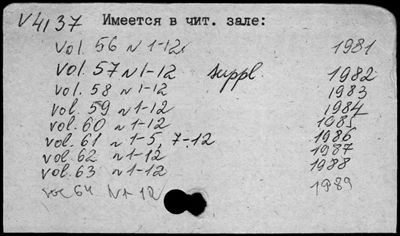 V 41 37 Имеется в чит. зале:
vol. 56 N 1-12 1981
vol. 57 N 1-12 suppl. 1982
vol. 58 N 1-12 1983
vol. 59 N 1-12 1984
vol. 60 N 1-12 1985
vol. 61 N 1-5, 7-12 1986
vol. 62 N 1-12 1987
vol. 63 N 1-12 1988
vol 64 N 1-12 1989